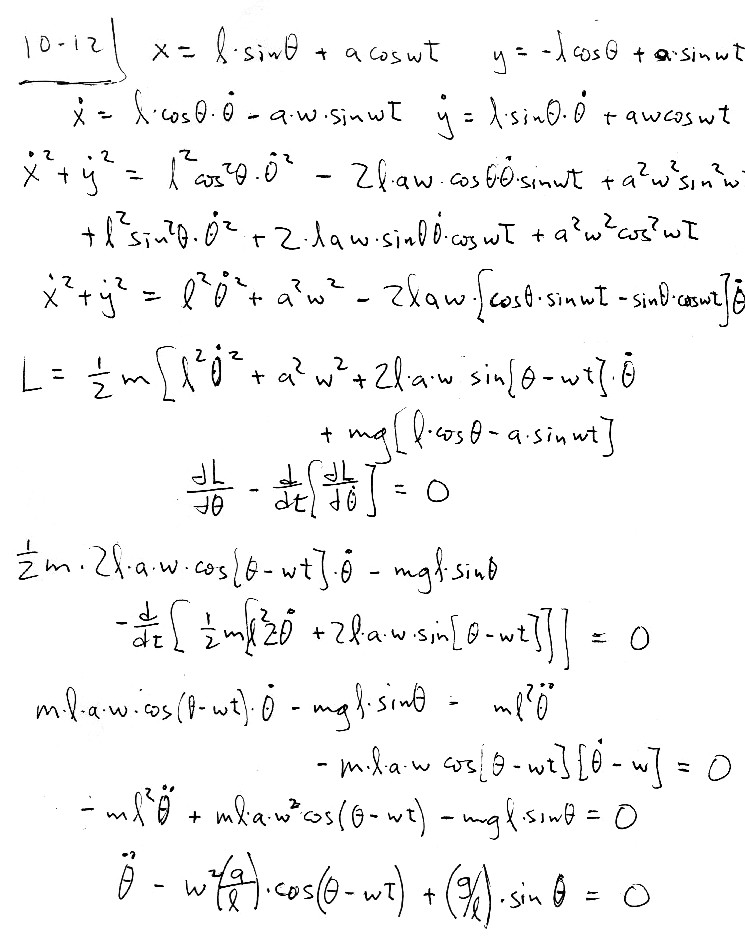 10-12 x = l·sinθ + a cos wt y = -l cosθ + a·sin wt
ẋ = l·cosθ·θ̇ - a·w·sin wt ẏ = l·sinθ·θ̇ + aw cos wt
ẋ² + ẏ² = l² cos²θ·θ̇² - 2l·aw·cosθ θ̇·sin wt + a²w² sin² w
+ l² sin²θ·θ̇² + 2·law·sinθ θ̇·cos wt + a²w² cos² wt
ẋ² + ẏ² = l²θ̇² + a²w² - 2law·[cosθ·sin wt - sinθ·cos wt]θ̇
L = 1/2 m[l²θ̇² + a²w² + 2l·a·w sin[θ - wt]·θ̇
+ mg[l·cosθ - a·sin wt]
dL/dθ - d/dt[dL/dθ̇] = 0
1/2 m·2l·a·w·cos[θ - wt]·θ̇ - mgl·sinθ
- d/dt[1/2 m[l²2θ̇ + 2l·a·w·sin[θ - wt]]] = 0
m·l·a·w·cos(θ - wt)·θ̇ - mgl·sinθ - ml²θ̈
- m·l·a·w cos[θ - wt][θ̇ - w] = 0
- ml²θ̈ + ml·a·w² cos(θ - wt) - mgl·sinθ = 0
θ̈ - w²(a/l)·cos(θ - wt) + (g/l)·sin θ = 0